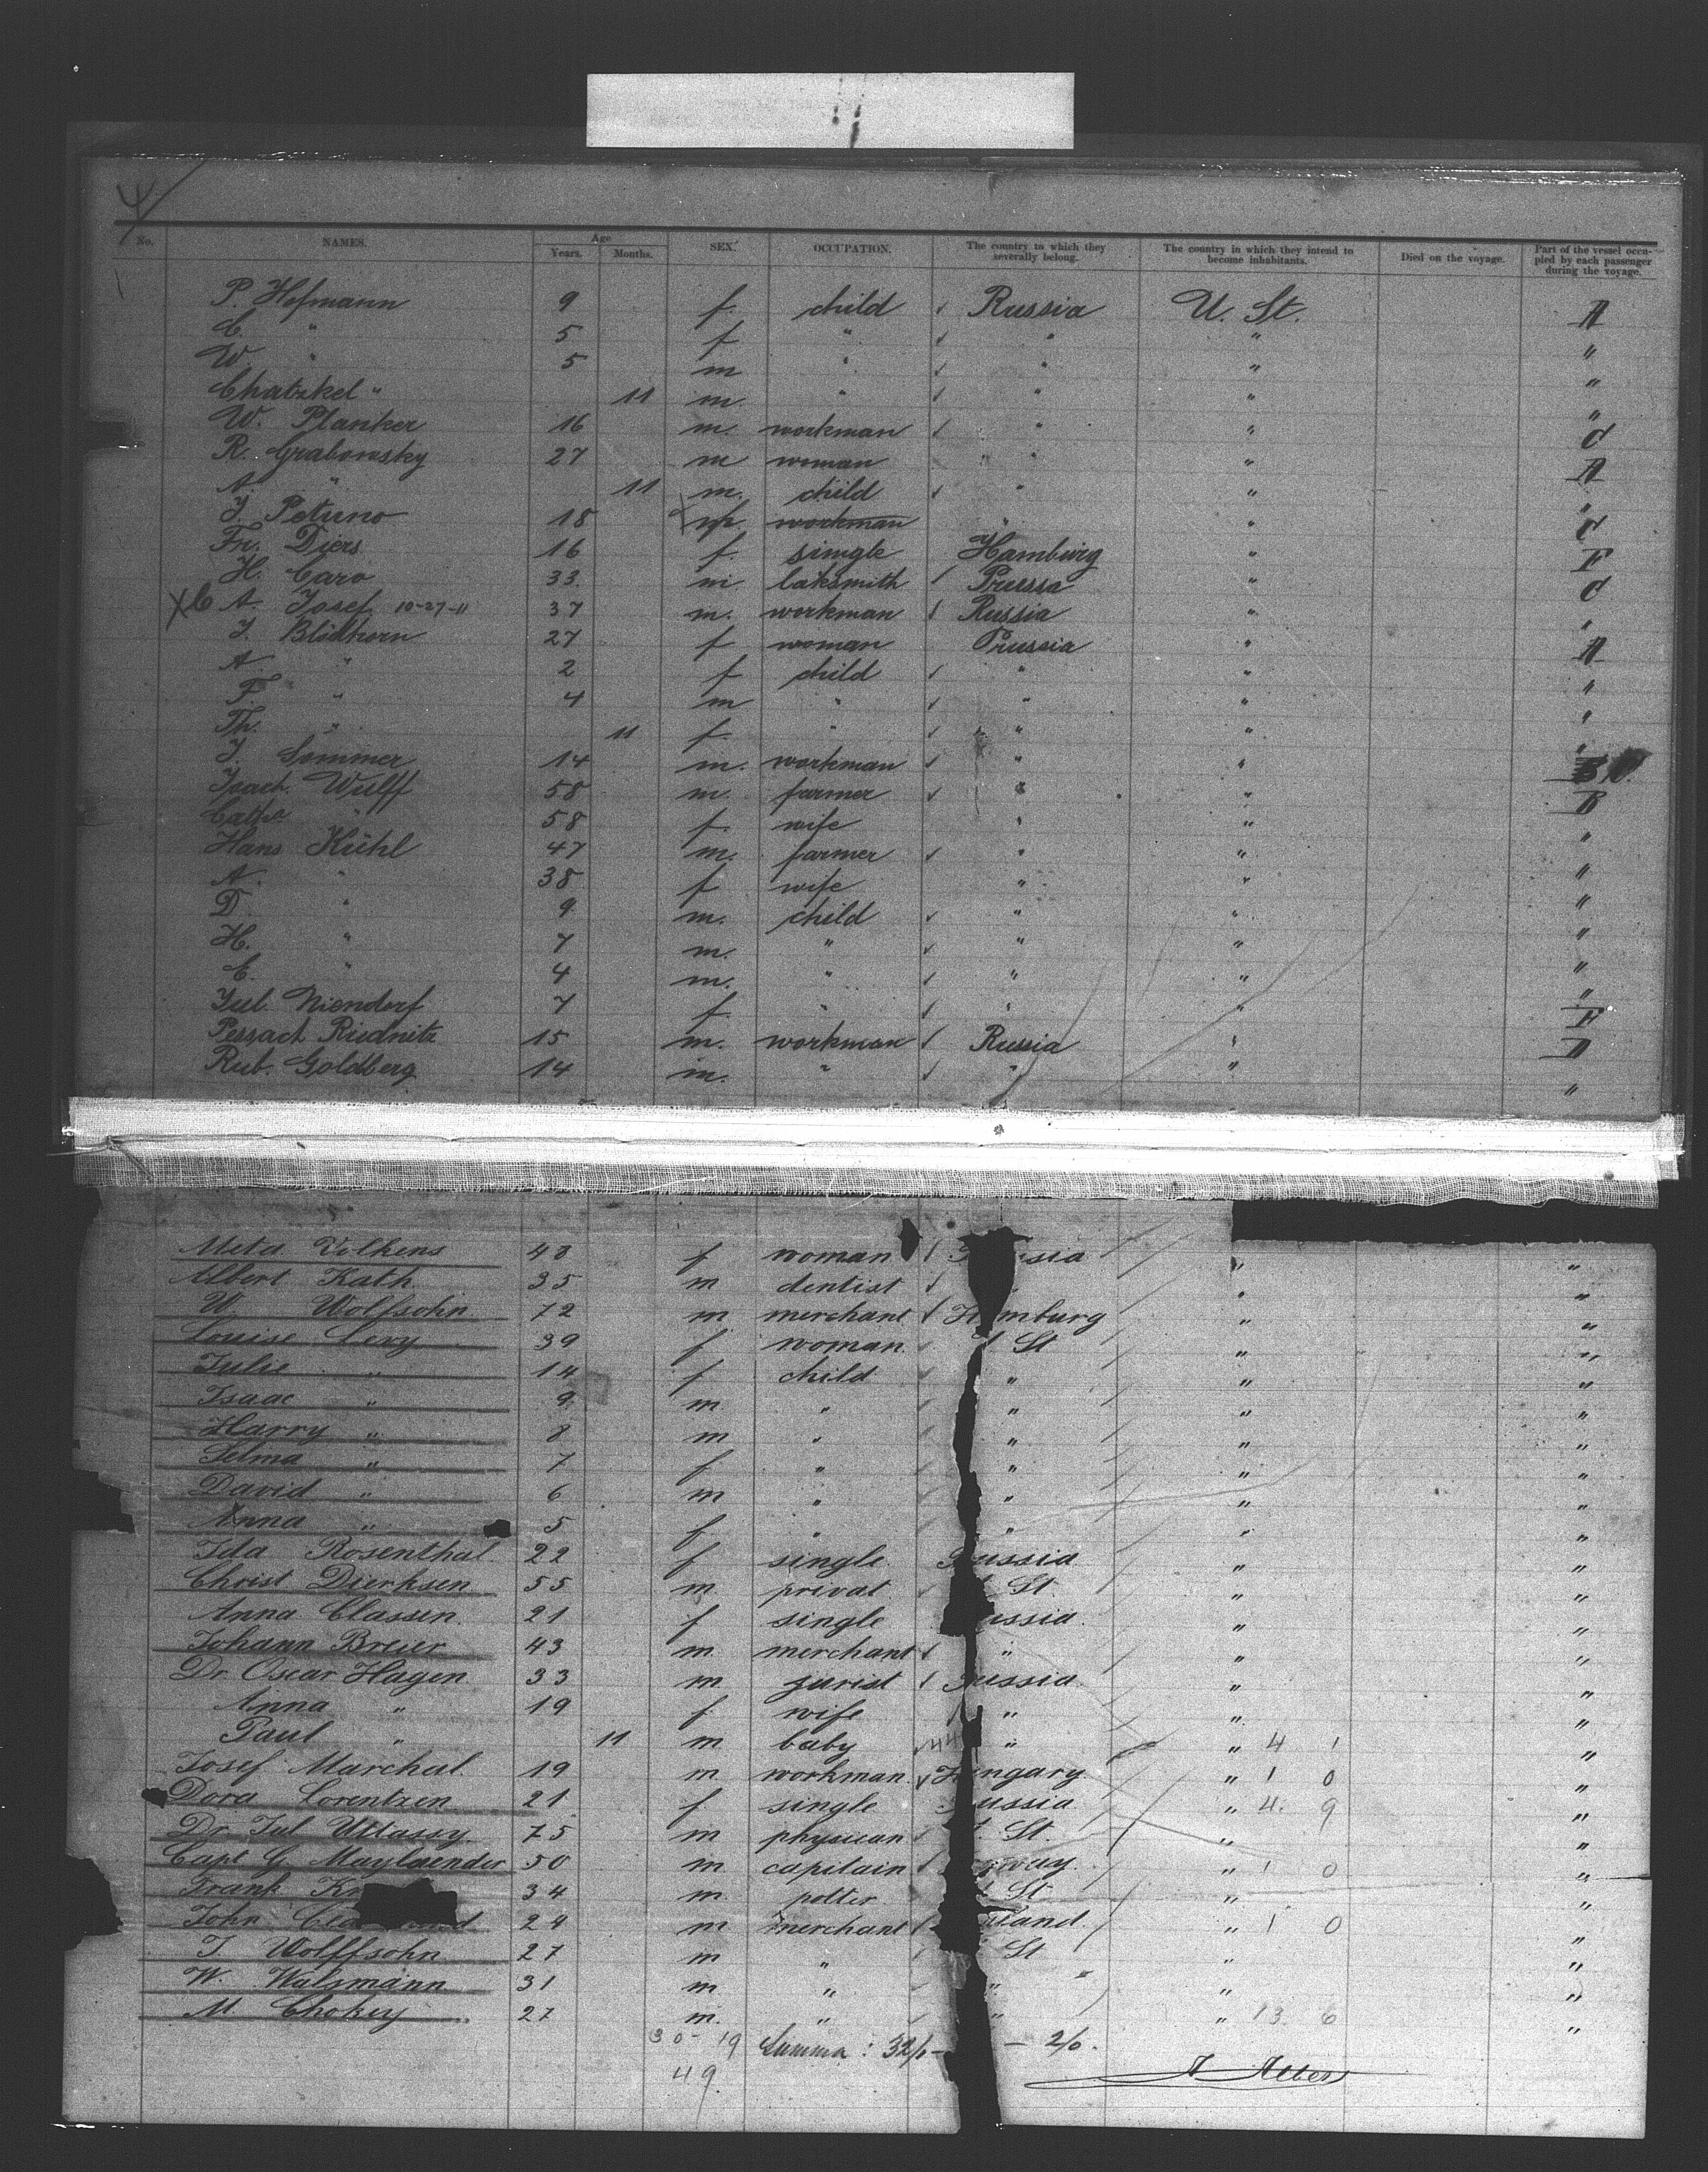 No. NAMES. Age Years. Months. SEX. OCCUPATION. The country to which they severally belong. The country in which they intend to become inhabitants. Died on the voyage. Part of the vessel occupied by each passenger during the voyage.
P. Hofmann 9 f. child Russia U. St. A
C. " 5 f " " " "
W. " 5 m " " " "
Chatzkel " 11 m. " " " "
W. Planker 16 m. workman " " C
R. Grabowsky 27 m woman " " A
A. " 11 m. child " " "
J. Petrno 18 workman " " C
Fr. Diers 16 f. single Hamburg " F
H. Caro 33. m laksmith Preussa " C
A. Josef 10-27-11 37 m. workman Russia " "
J. Blödhorn 27 f woman Prussia " A
A. " 2 f child " " "
F. " 4 m " " " "
Th. " 11 f. " " " "
J. Sommer 14 m. workman " "
Joach. Wulff 58 m. farmer " " B
Cathe " 58 f. wife " " "
Hans Kühl 47 m. farmer " " "
A. " 38 f wife " " "
D. " 9 m. child " " "
H. " 7 m. " " " "
C. " 4 m. " " " "
Jul. Niendorf 7 f. " " " F
Pessach Riednitz 15 m. workman Russia " D
Rub. Goldberg 14 m. " " " "
Meta Volkens 48 f woman " "
Albert Kath 35 m dentist " "
W. Wolfsohn 72 m merchant Hamburg " "
Louise Levy 39 f woman. St " "
Julie " 14 f child " " "
Isaac " 9 m " " " "
Harry " 8 m " " " "
Selma " 7 f " " " "
David " 6 m " " " "
Anna " 5 f " " " "
Ida Rosenthal 22 f single. ussia " "
Christ Dierksen 55 m privat St " "
Anna Classen. 21 f single ussia. " "
Johann Breier 43 m merchant " " "
Dr. Oscar Hagen. 33 m. jurist ussia. " "
Anna " 19 f wife " " "
Paul " 11 m baby " " 4 1 "
Josef Marchal. 19 m workman. Hungary. " 1 0 "
Dora Lorentzen 21 f single ussia " 4. 9 "
Dr Jul Uttassy. 75 m physician St. " "
Capt G Maylaender 50 m capitain way. " 1 0 "
Frank Kr 34 m potter St " "
John Cla d 24 m merchant land. " 1 0 "
J Wolffsohn 27 m " St " "
W. Walzmann 31 m " " " "
M Chokey 27 m. " " " 13 6 "
30 - 19 Summa : 32/0 - - 2/0.
49. A Albers